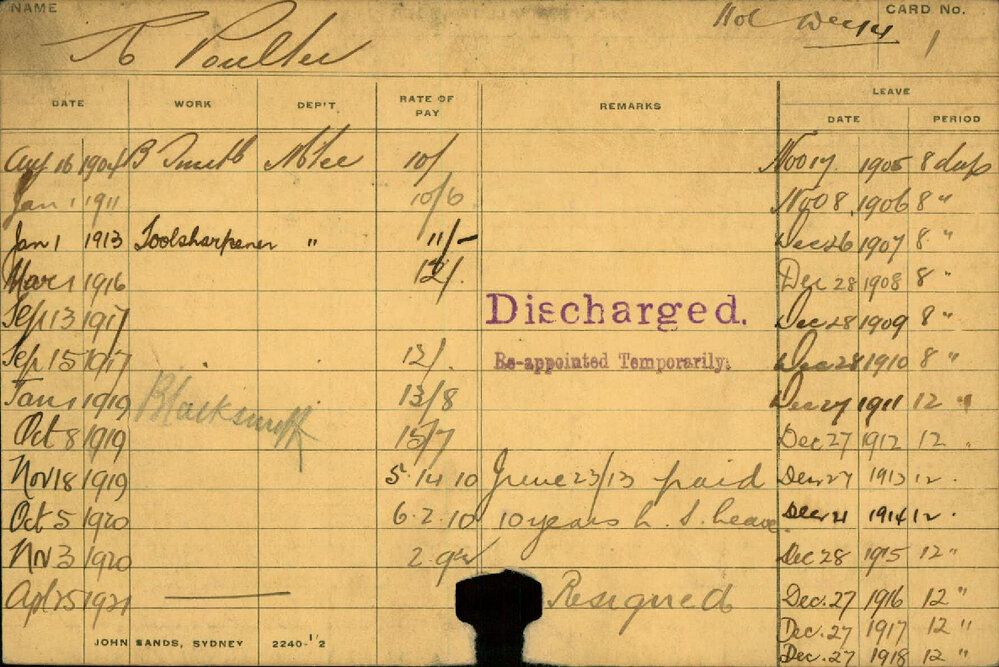 NAME
A Poulter
Dec 14
CARD No.
1
DATE WORK DEP'T RATE OF PAY REMARKS LEAVE
DATE PERIOD
Aug 16 1904 B Smith 10/ Nov 17 1905 8 days
Jan 1 1911 10/6 Nov 8 1906 8 "
Jan 1 1913 Toolsharpener " 11/- Dec 26 1907 8 "
Mar 1 1916 12/. Dec 28 1908 8 "
Sep 13 1917 Discharged. Dec 28 1909 8 "
Sep 15 1917 12/. Re-appointed Temporarily. Dec 28 1910 8 "
Jan 1 1919 Blacksmith 13/8 Dec 27 1911 12 "
Oct 8 1919 15/7 Dec 27 1912 12 .
Nov 18 1919 5.14.10 June 23/13 paid Dec 27 1913 12 .
Oct 5 1920 6.2.10 10 years L. S. Leave Dec 21 1914 12 .
Nov 3 1920 Dec 28 1915 12 "
Apl 25 1921 Resigned Dec. 27 1916 12 "
Dec. 27 1917 12 "
JOHN SANDS, SYDNEY 2240-1/2
Dec. 27 1918 12 "